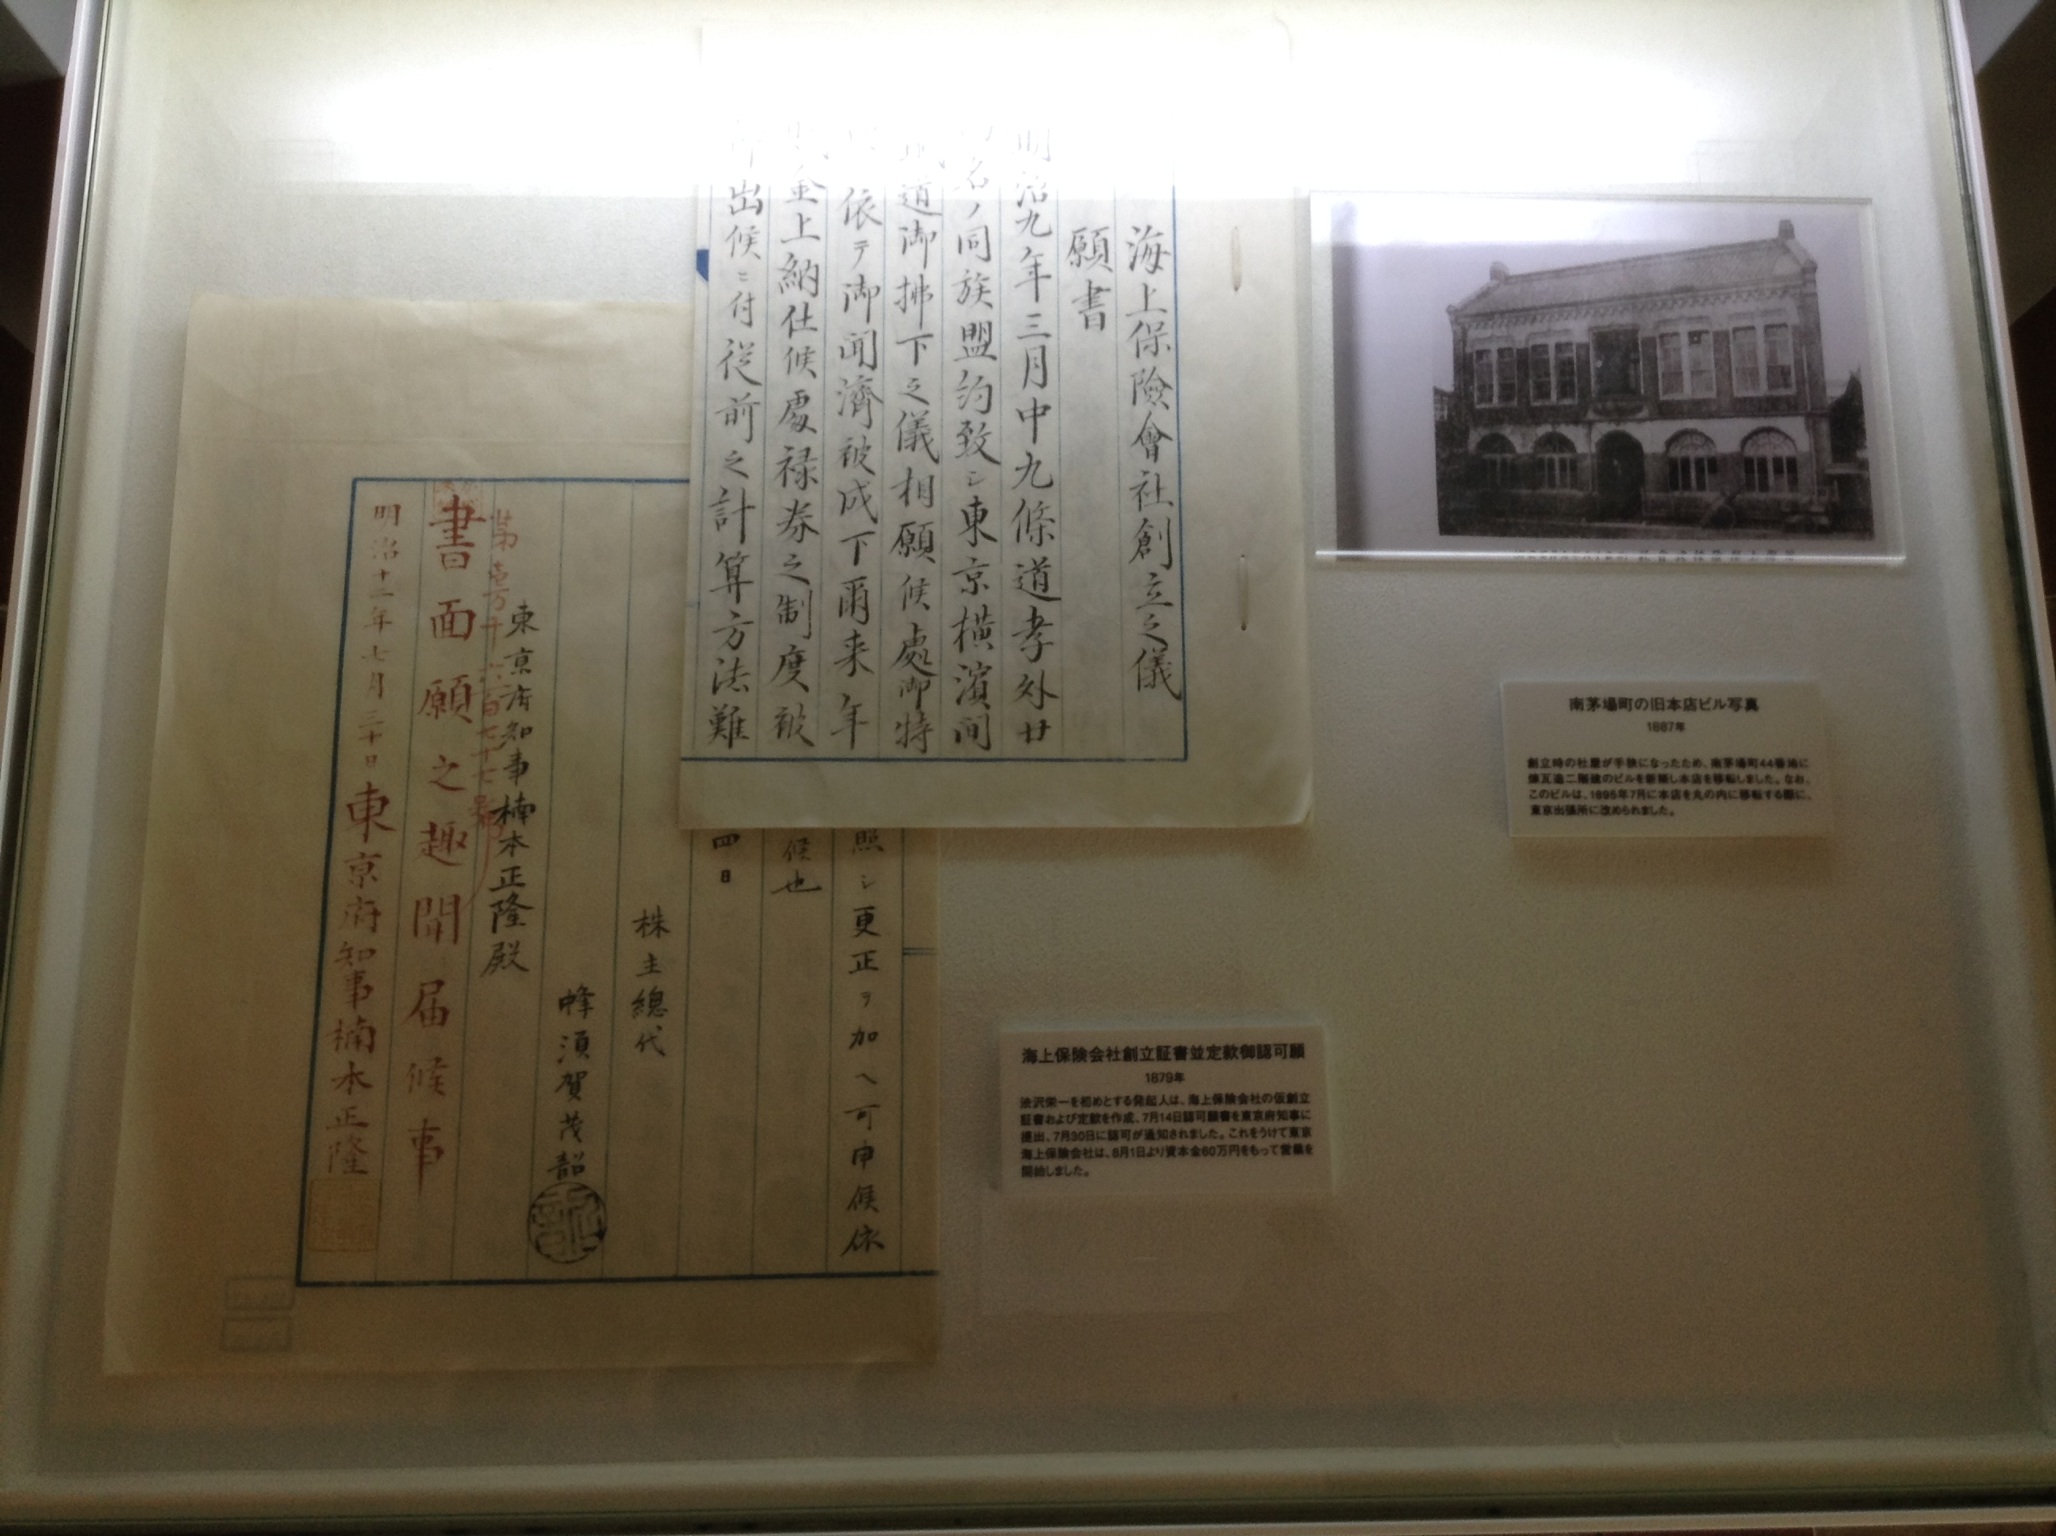 海上保險會社創立之儀
願書
明治九年三月中九條道孝外廿
名ノ同族盟約致シ東京橫濱間
道御拂下之儀相願候處御特
依テ御聞濟被成下爾来年
金上納仕候處禄券之制度被
出候ニ付従前之計算方法難
照シ更正ヲ加ヘ可申候依
候也
四日
株主總代
蜂須賀茂韶
東京府知事楠本正隆殿
第壱万千六百七十七號
書面願之趣聞届候事
明治十二年七月三十日東京府知事楠本正隆
南茅場町の旧本店ビル写真
1887年
創立時の社屋が手狭になったため、南茅場町44番地に
煉瓦造二階建のビルを新築し本店を移転しました。なお、
このビルは、1895年7月に本店を丸の内に移転する際に、
東京出張所に改められました。
海上保険会社創立証書並定款御認可願
1879年
渋沢栄一を初めとする発起人は、海上保険会社の仮創立
証書および定款を作成、7月14日認可願書を東京府知事に
提出、7月30日に認可が通知されました。これをうけて東京
海上保険会社は、8月1日より資本金60万円をもって営業を
開始しました。